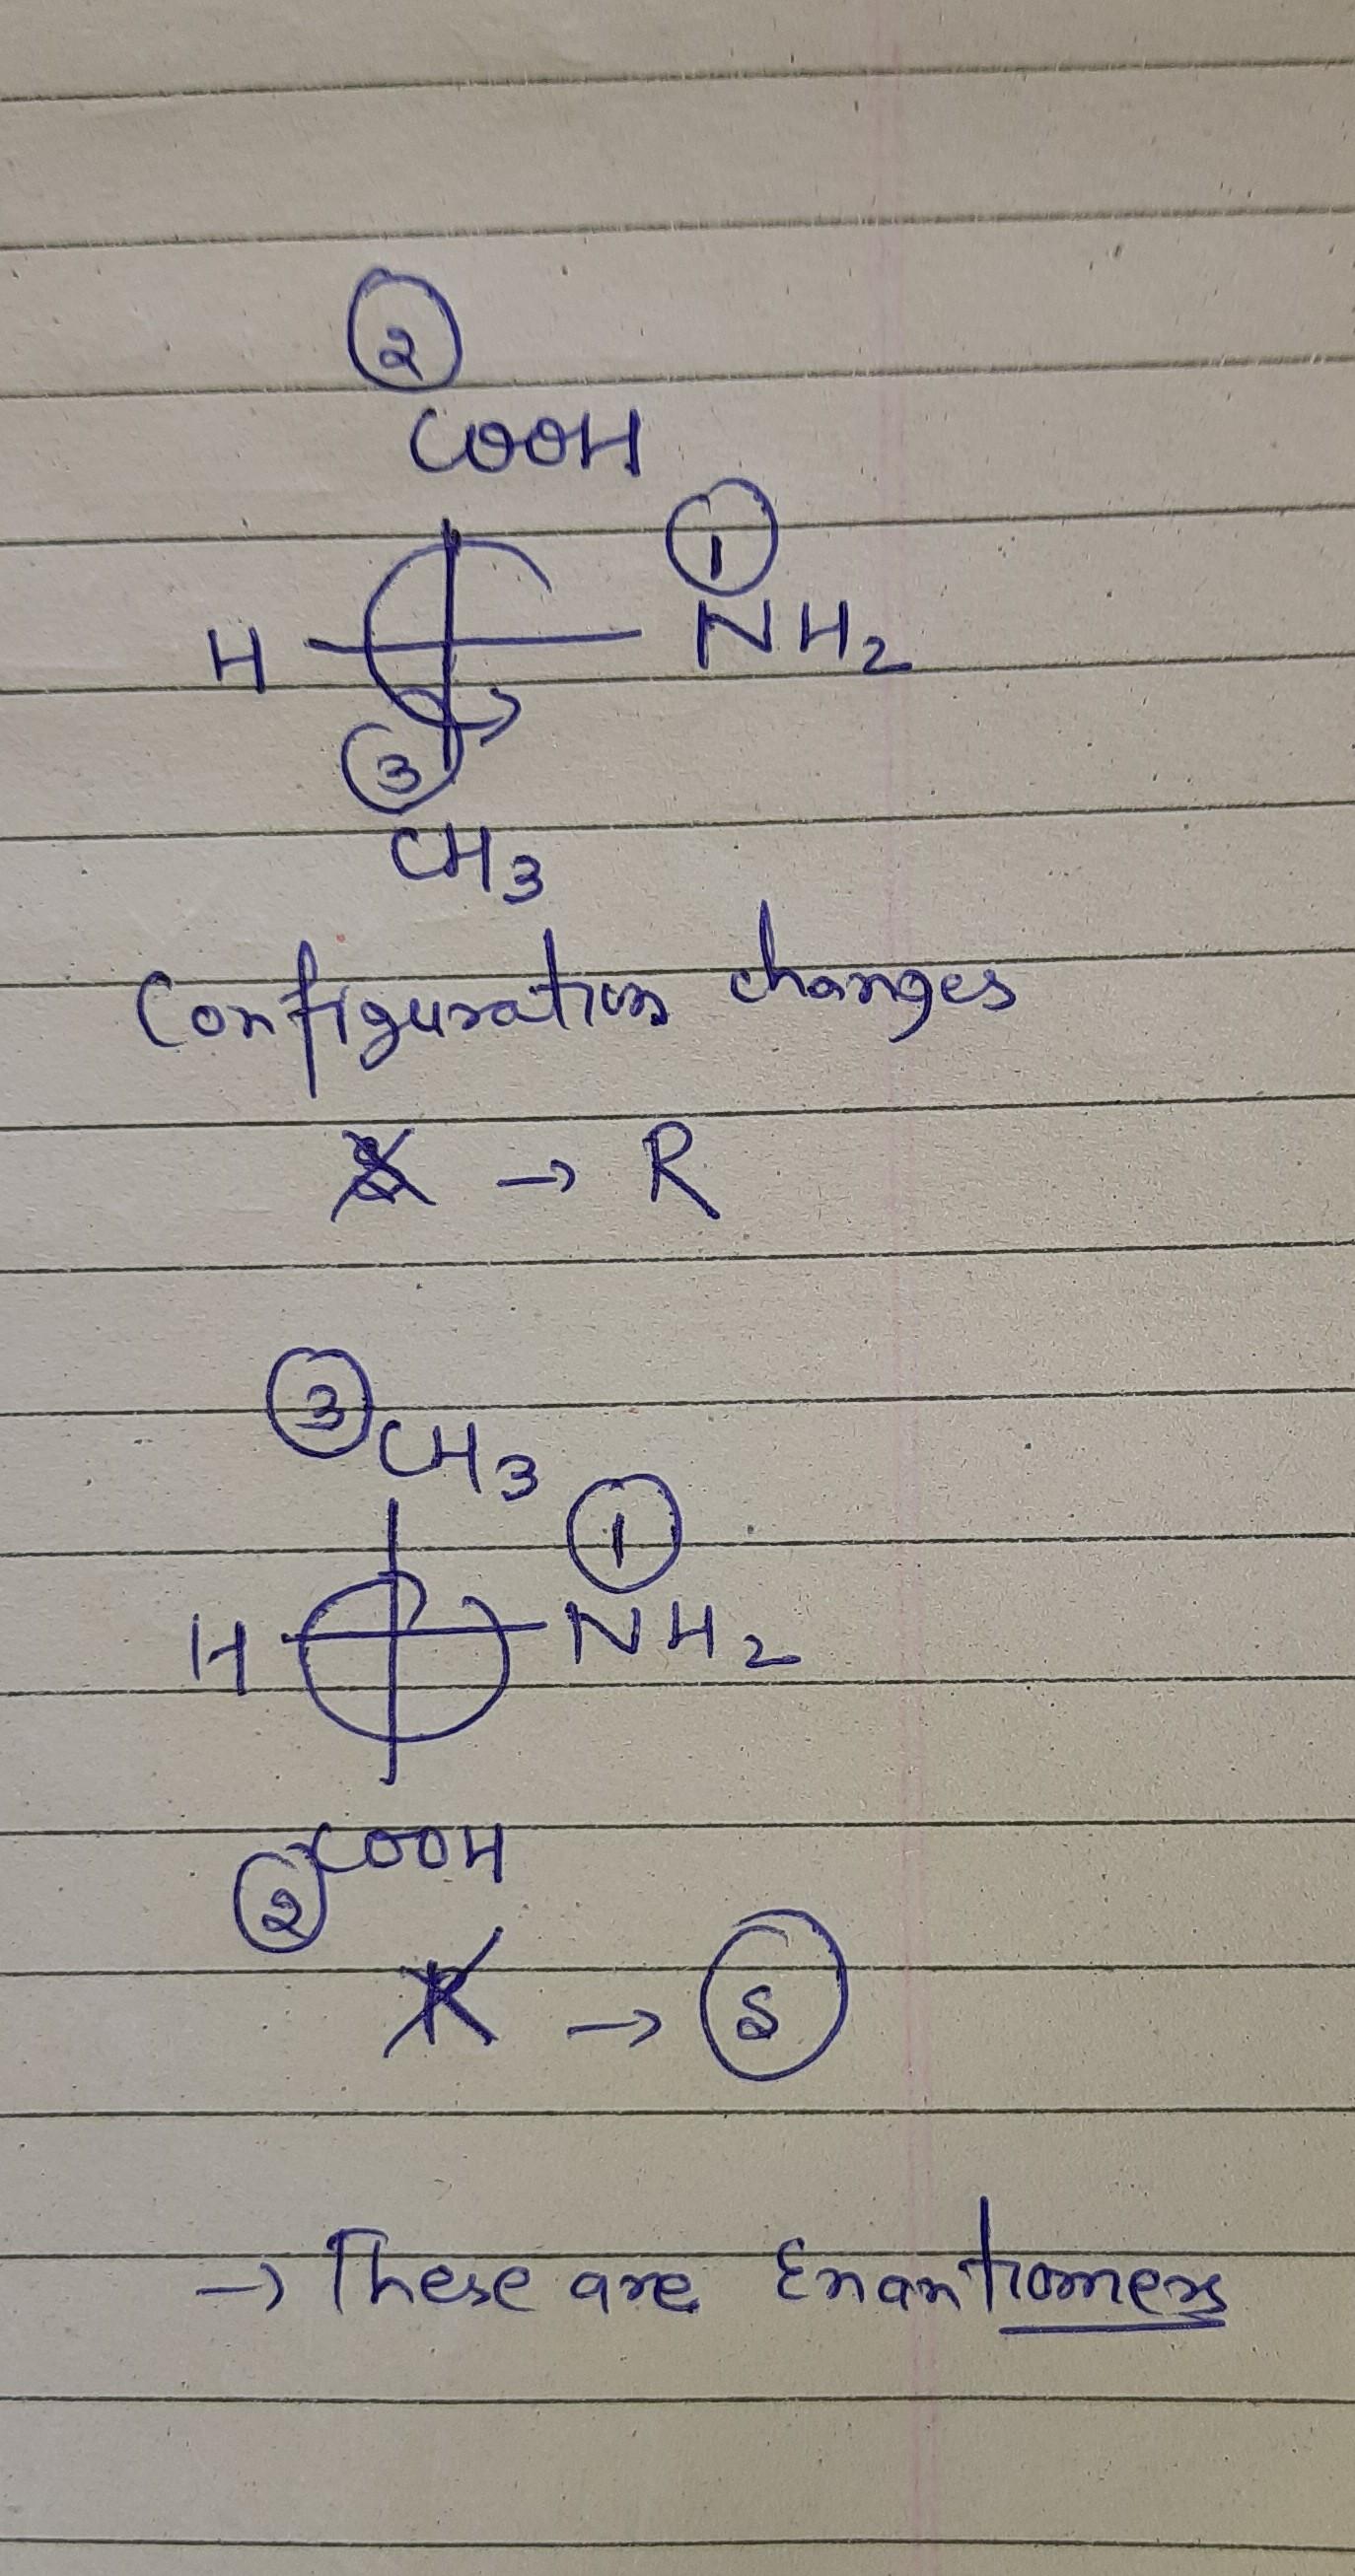 ②
COOH
①
H NH₂
③
CH₃
Configuration changes
→ R
③ CH₃
①
H NH₂
② COOH
R → Ⓢ
→ These are Enantiomers